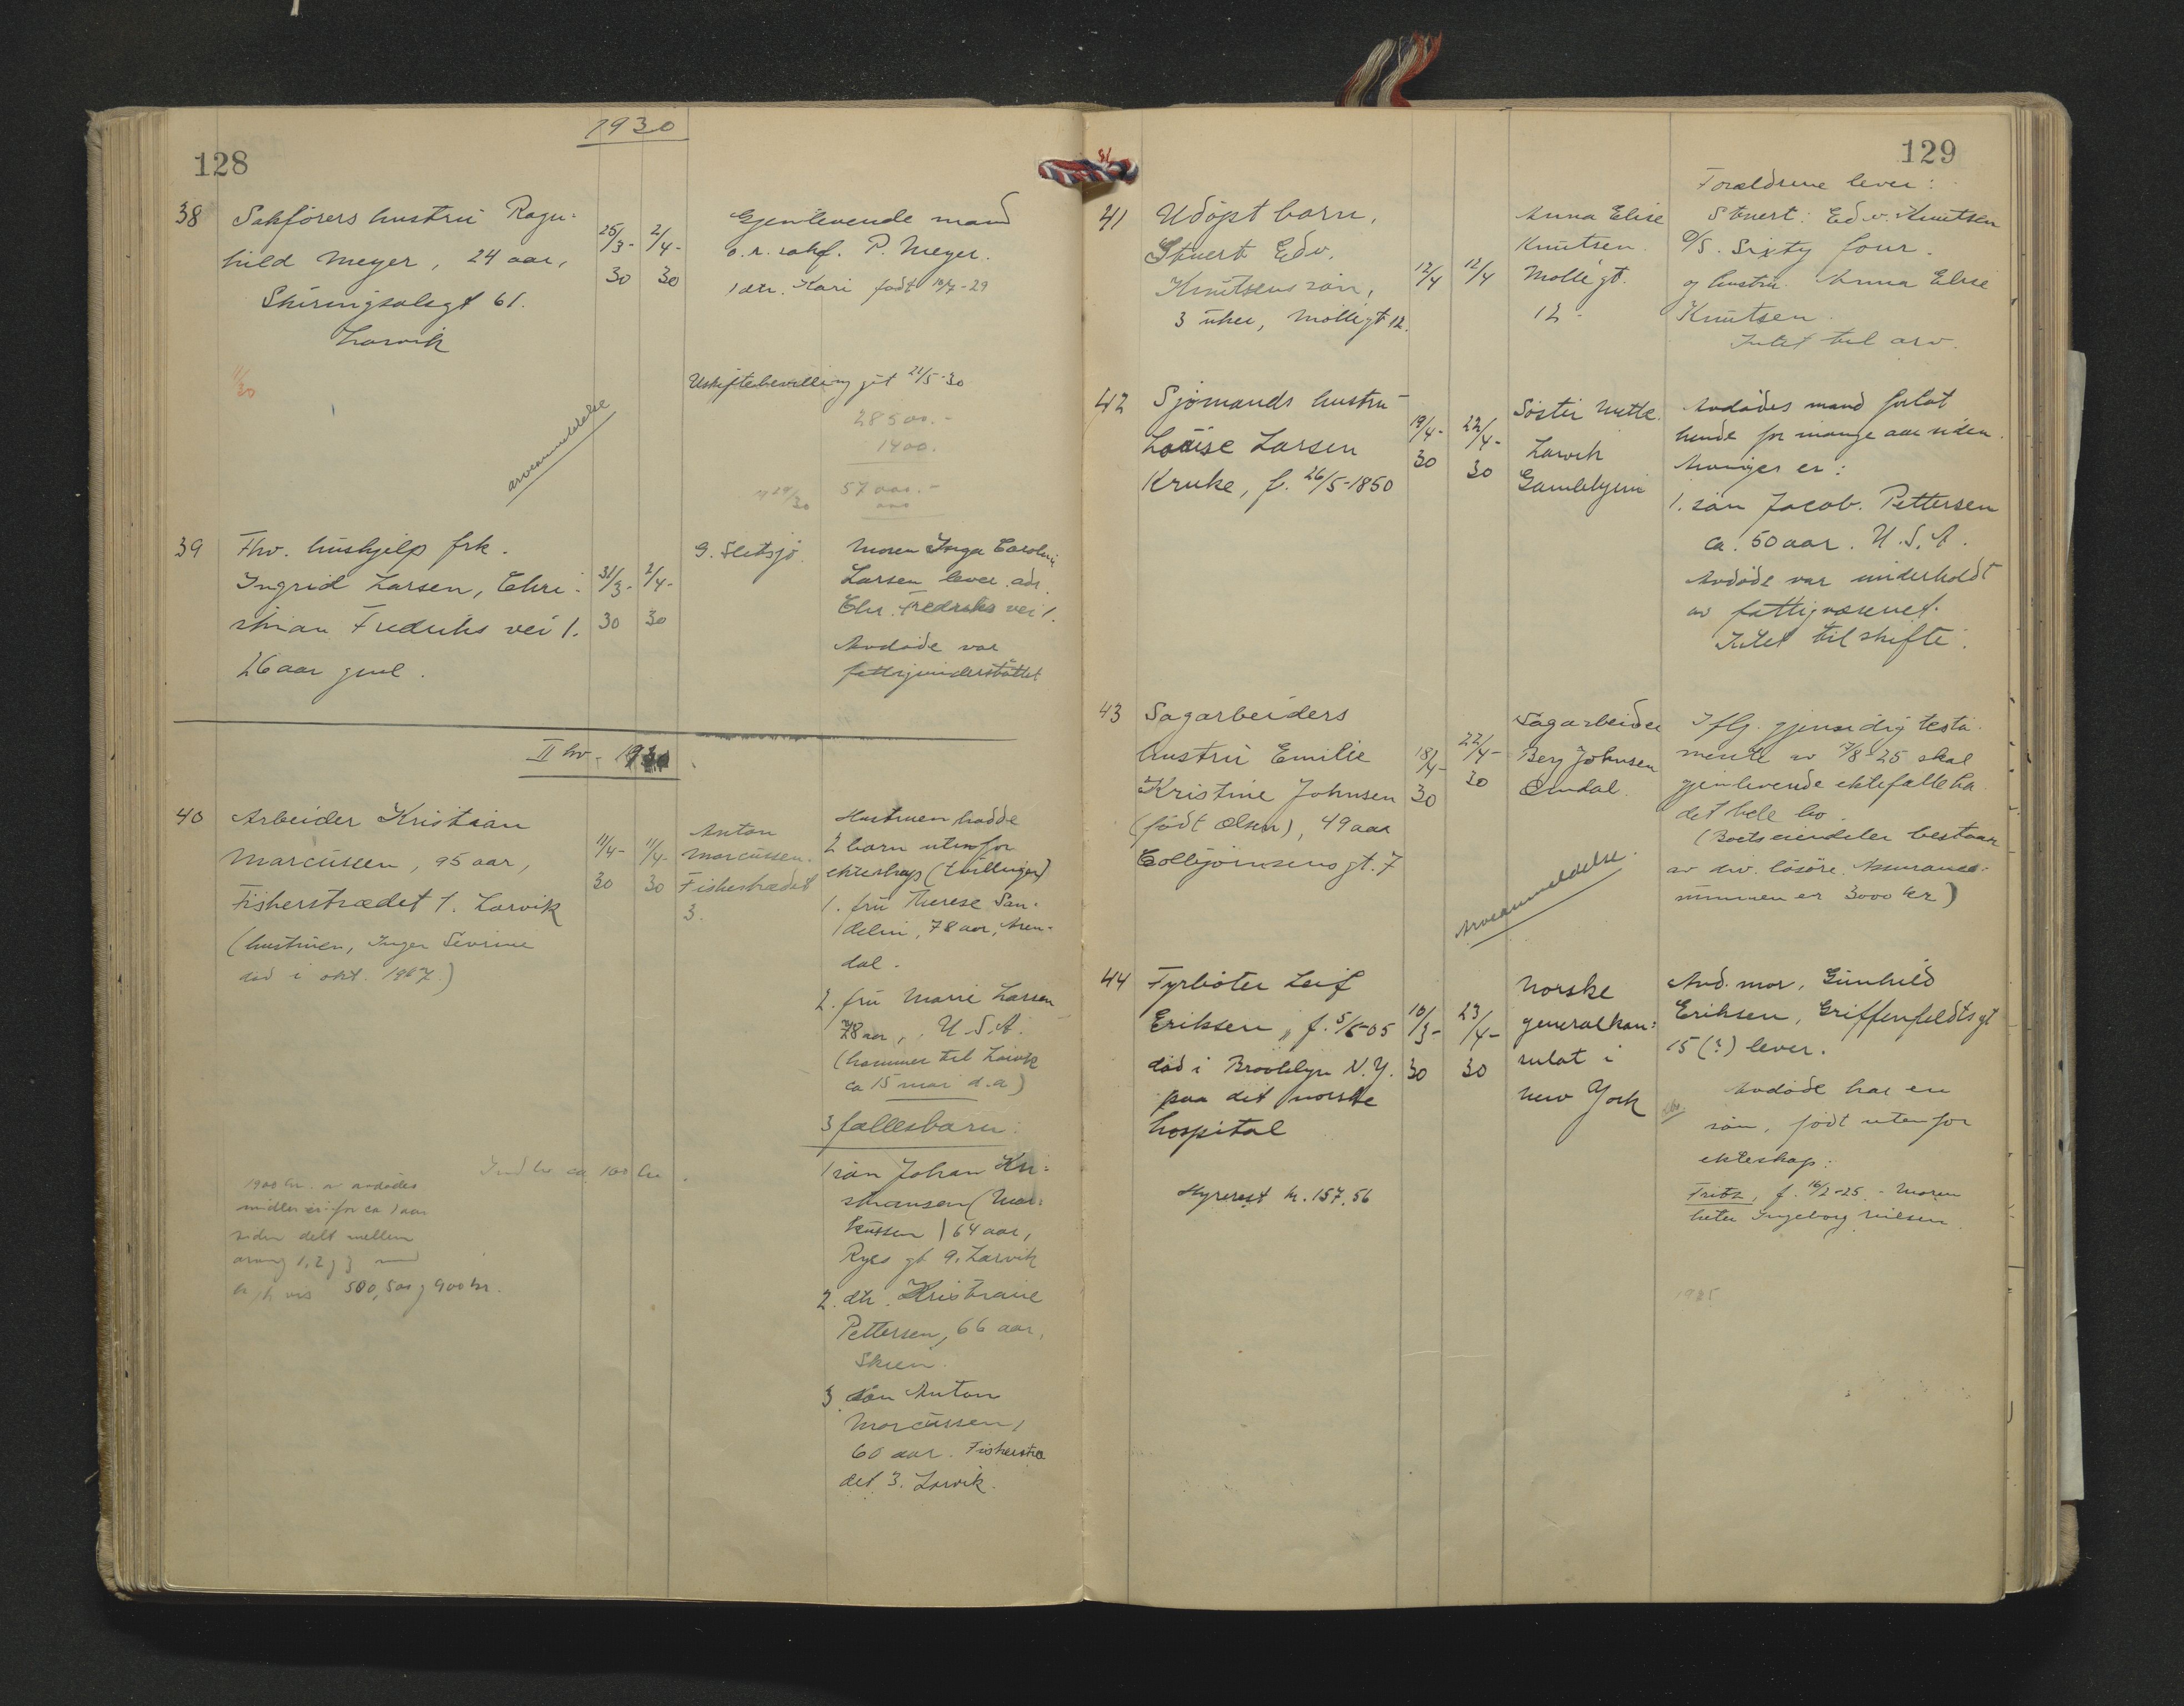 1930
128
38
Sakførers hustru Ragn-
hild Meyer, 24 aar,
Skiringsalsgt 61.
Larvik
25/3-30
2/4-30
Gjenlevende mand
o.r. sakf. P. Meyer.
1 dtr. Kari født
Uskiftebevilling git 21/5-30
28500.-
1400.
arveanmeldelse
39
Fhv. hushjelp frk.
Ingrid Larsen, Chri-
stian Fredriks vei 1.
26 aar gml.
31/3-30
2/4-30
G. Sletsjø.
Moren Inga
Larsen lever. adr.
Chr. Fredriks vei 1.
Avdøde var
fattigunderstøttet
II hv. 1930
40
Arbeider Kristian
Marcussen, 95 aar,
Fiskerstrædet 1. Larvik
(hustruen, Inger Sevrine
død i okt.
11/4-30
11/4-30
Anton
Marcussen.
Fiskerstrædet
3.
Hustruen hadde
2 barn utenfor
ekteskap (tvillinger)
1. fru Therese San-
delin, 78 aar, Aren-
dal.
2. fru Marie Larsen
78 aar, U.S.A.
(kommer til Larvik
ca 15 mai d.a)
3 fællesbarn:
1 søn Johan Kri-
stiansen (Mar-
kussen) 64 aar,
Ryes gt 9. Larvik
2. dtr. Kristiane
Pettersen, 66 aar,
Skien.
3. søn Anton
Marcussen,
60 aar. Fiskerstræ
det 3. Larvik.
ca 100 kr.
1900 kr. av avdødes
midler er for ca 1 aar
siden delt mellem
arving 1, 2 og 3 med
500, 500 og 900 kr.
129
41
Udøpt barn,
Stuert Edv.
Knutsens søn,
3 uker, Møllegt 12.
12/4
12/4
Anna Elise
Knutsen.
Møllegt.
12-
Forældrene lever:
Stuert: Edv. Knutsen
D/S. Sixty four.
og hustru Anna Elise
Knutsen.
Intet til arv.
42
Sjømands hustru
Louise Larsen
Kruke, f. 26/5-1850
19/4-30
22/4-30
Søster Mette.
Larvik
Gamlehjem
Avdødes mand forlot
hende for mange aar siden.
Arvinger er:
1. søn Jacob. Pettersen
ca. 50 aar. U.S.A.
Avdøde var underholdt
av fattigvæsenet.
Intet til skifte.
43
Sagarbeiders
hustru Emilie
Kristine Johnsen
(født Olsen), 49 aar
Colbjørnsens gt. 7
18/4-30
22/4-30
Sagarbeider
Johnsen
Iflg. gjensidig testa-
mente av 7/8-25 skal
gjenlevende ektefælle ha
det hele bo.
(Boets eiendeler bestaar
av div. løsøre. Assurance-
summen er 3000 kr)
Arveanmeldelse.
44
Fyrbøter Leif
Eriksen, f. 5/6-05
død i Brooklyn N.Y.
paa det norske
hospital
10/3-30
23/4-30
Norske
generalkon-
sulat i
New York
Avd. mor, Gunhild
Eriksen, Griffenfeldts gt
15 (?) lever.
Avdøde har en
søn, født utenfor
ekteskap:
Fritz, f. 16/2-25. - Moren
heter Ingeborg Nilsen.
Hyrerest kr. 157.56